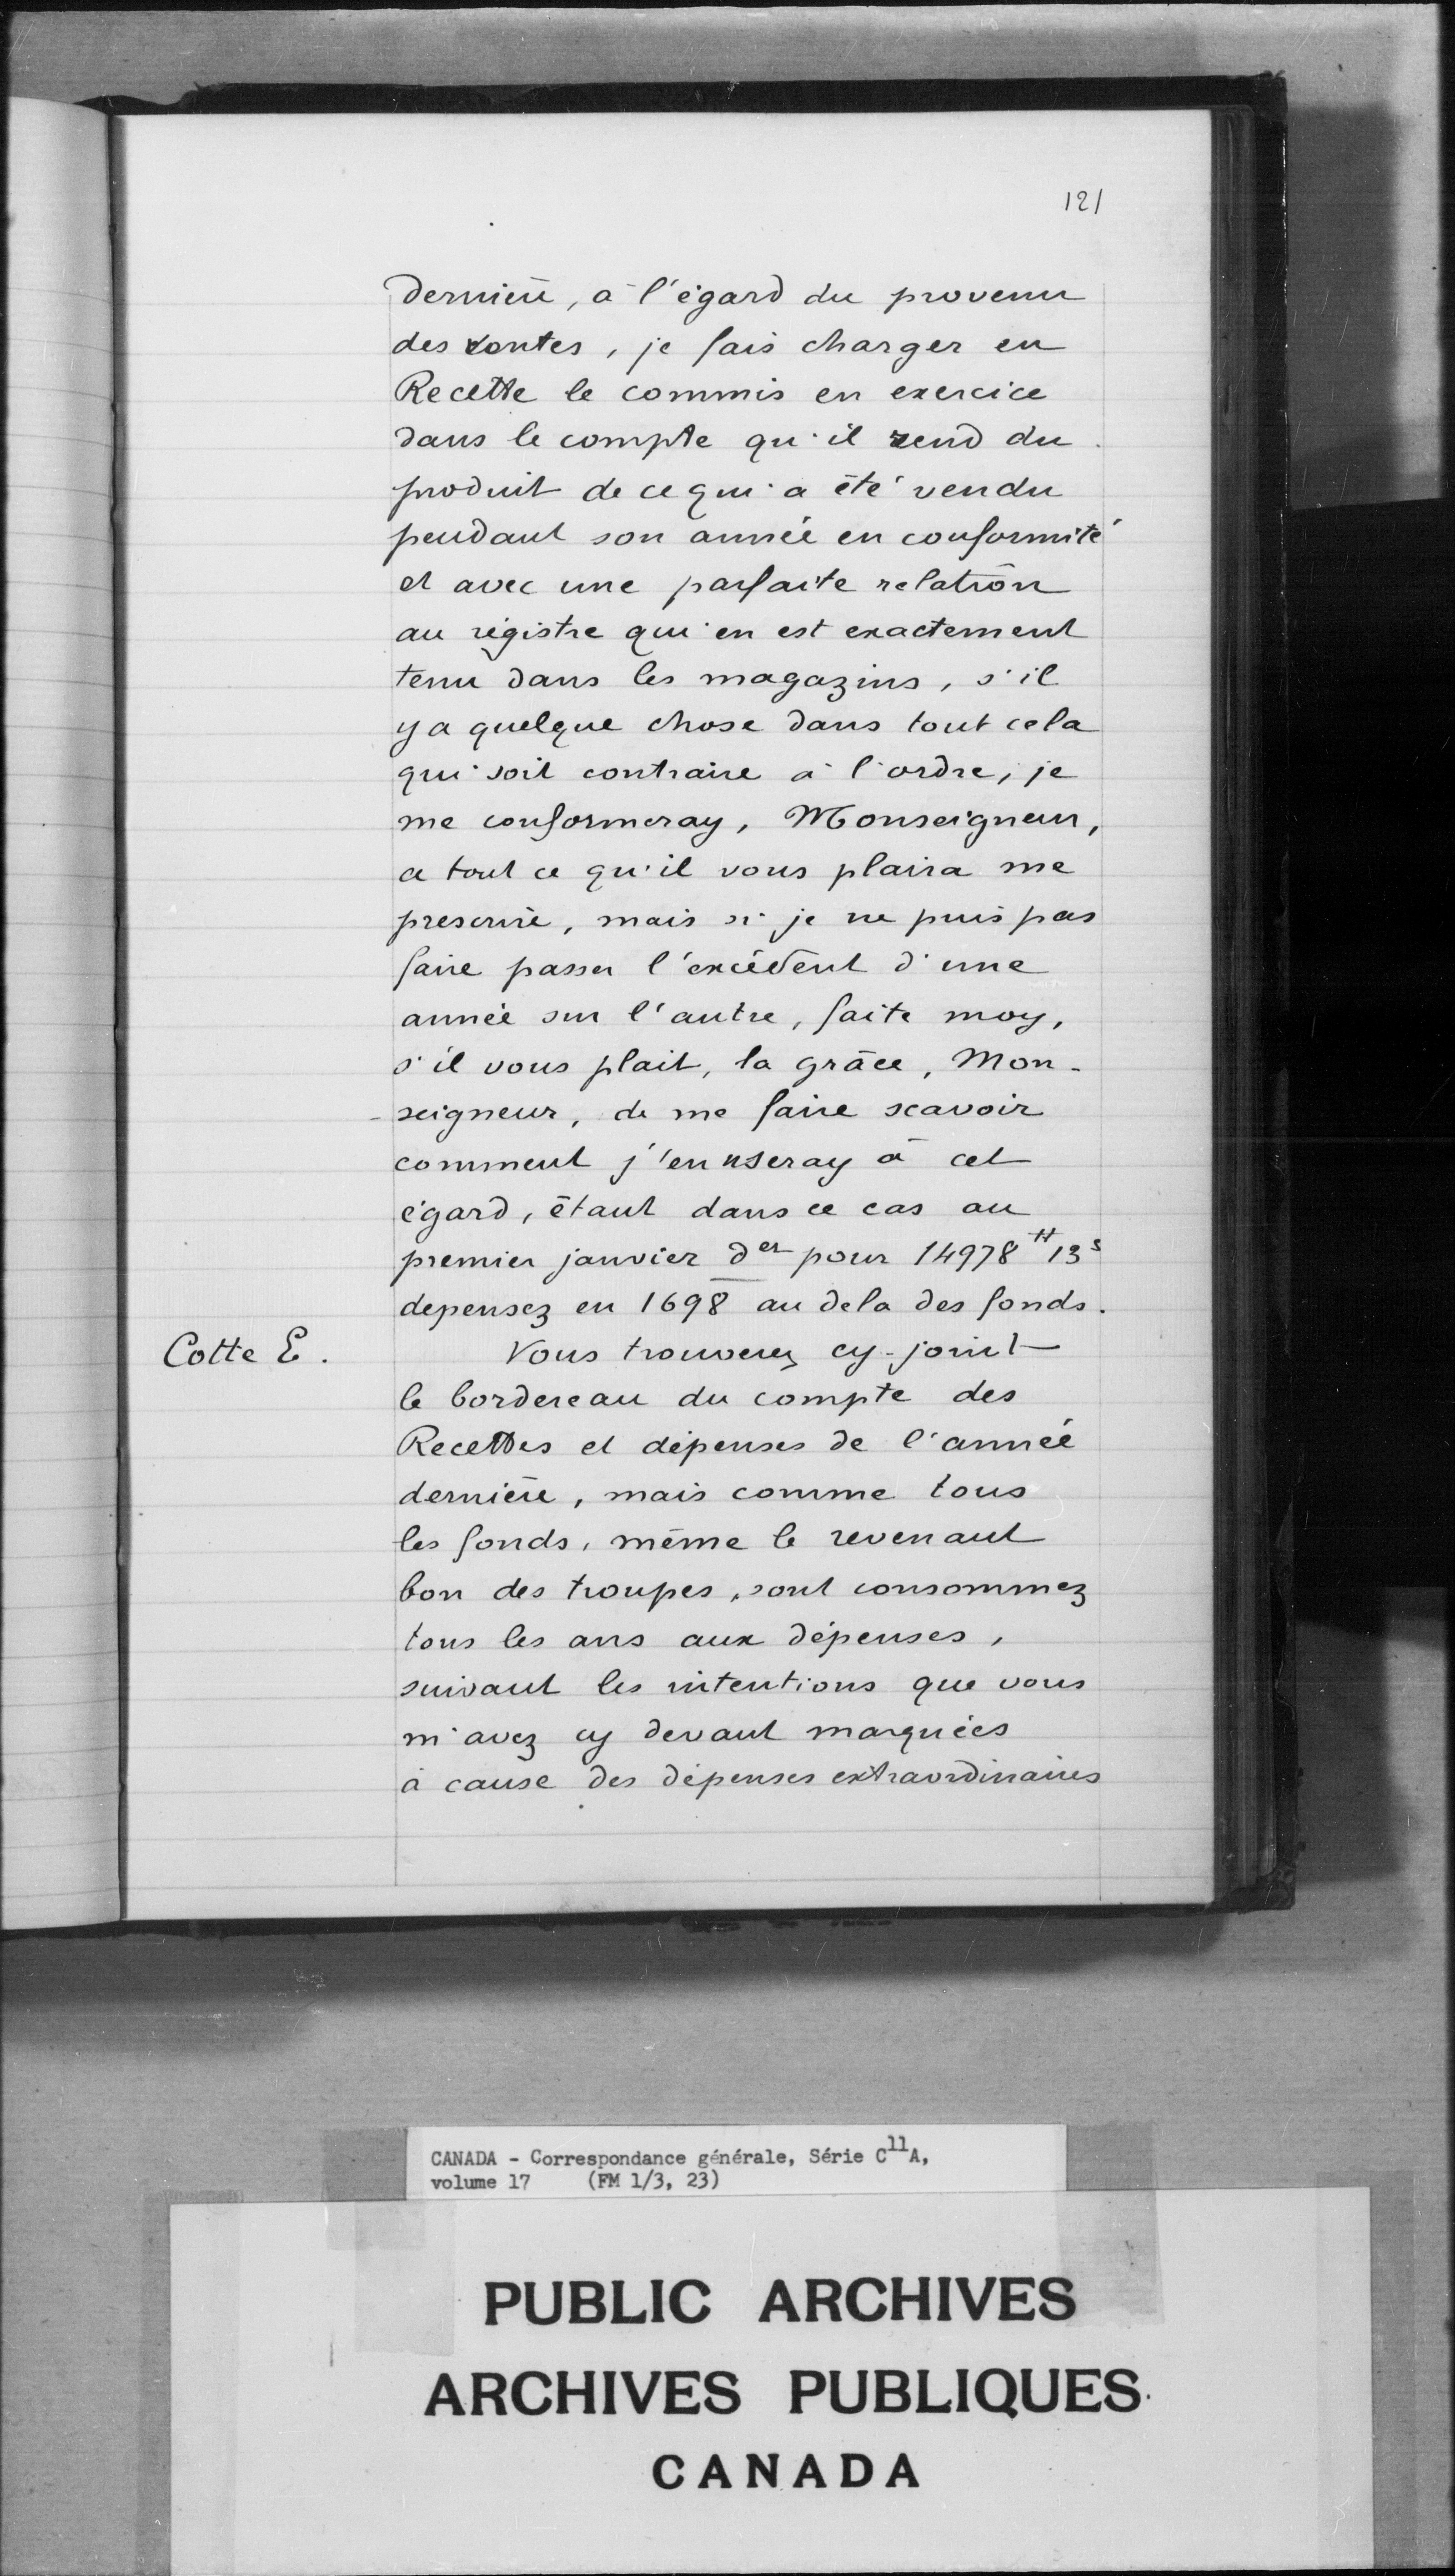 121
dernière, à l'égard du provenu
des ventes, je fais charger en
Recette le commis en exercice
dans le compte qu'il rend du
produit de ce qui a été vendu
pendant son année en conformité
et avec une parfaite relation
au régistre qui en est exactement
tenu dans les magazins, s'il
y a quelque chose dans tout cela
qui soit contraire à l'ordre, je
me conformeray, Monseigneur,
a tout ce qu'il vous plaira me
prescrire, mais si je ne puis pas
faire passer l'excédent d'une
année sur l'autre, faite moy,
s'il vous plait, la grâce, Mon-
-seigneur, de me faire scavoir
comment j'en useray à cet
égard, étant dans ce cas au
premier janvier der pour 14978 ₶ 13 s
depensez en 1698 au dela des fonds.
Cotte E. Vous trouverez cy-joint
le bordereau du compte des
Recettes et dépenses de l'année
dernière, mais comme tous
les fonds, même le revenant
bon des troupes, sont consommez
tous les ans aux dépenses,
suivant les intentions que vous
m'avez cy devant marquées
à cause des dépenses extraordinaires
CANADA - Correspondance générale, Série C11A,
volume 17 (FM 1/3, 23)
PUBLIC ARCHIVES
ARCHIVES PUBLIQUES
CANADA